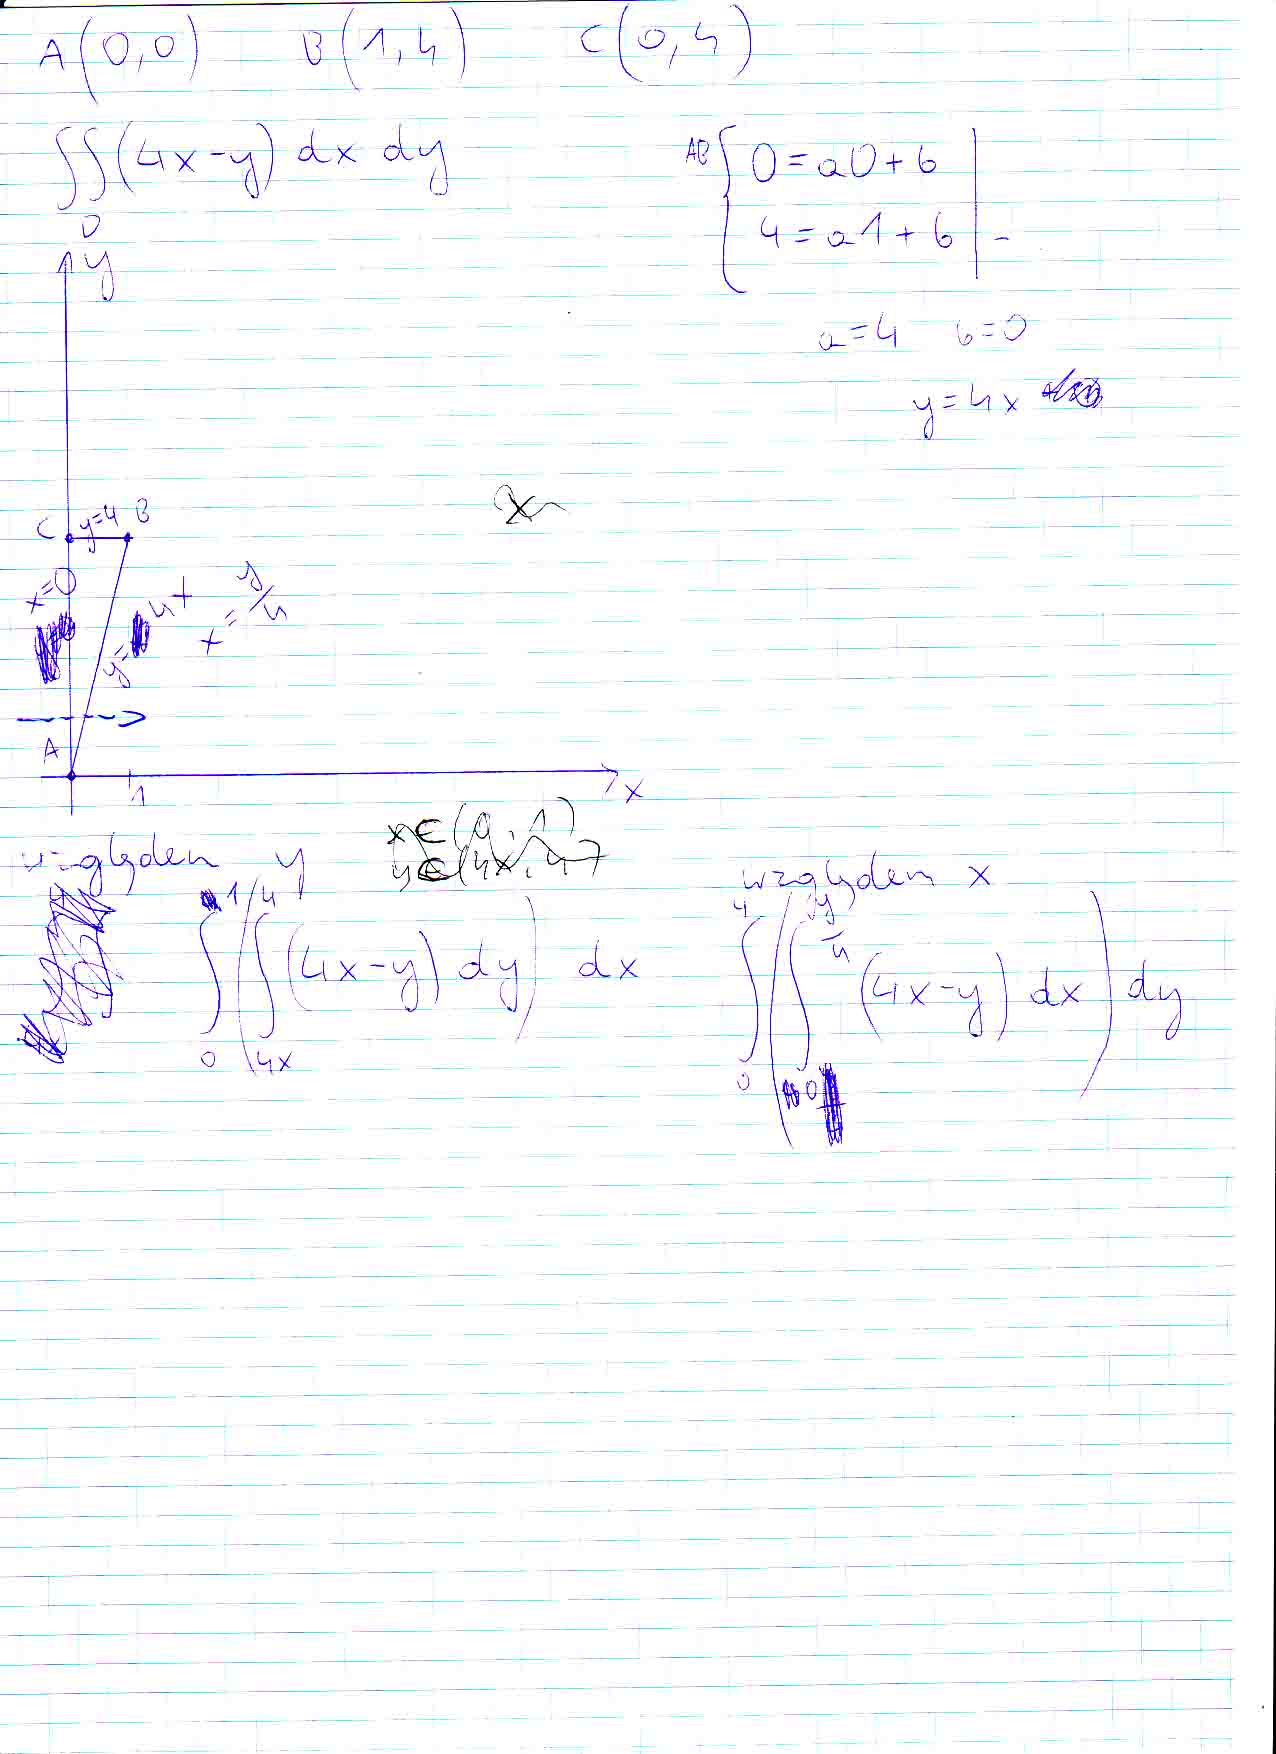 A(0,0) B(1,4) C(0,4)
∬ (4x-y) dx dy
D
AB { 0=a0+b
4=a1+b | -
a=4 b=0
y=4x
y
C y=4 B
x=0
y=4x
x=y/4
A
1
x
względem y
x∈(0,1)
y∈(4x,4)
∫₀¹(∫₄ₓ⁴(4x-y) dy) dx
względem x
∫₀⁴(∫₀^(y/4) (4x-y) dx) dy